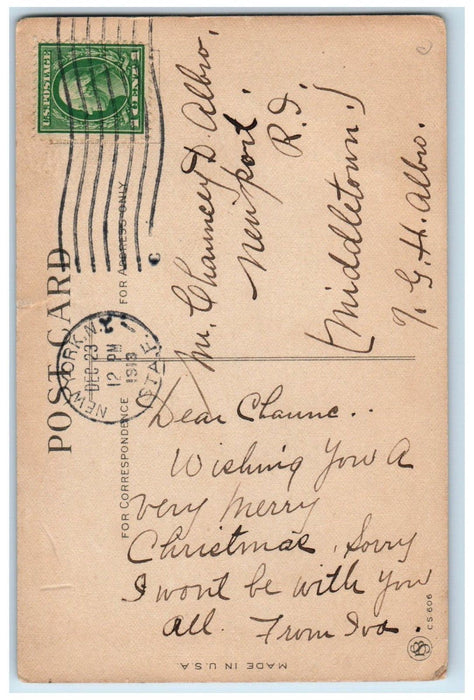 U.S. POSTAGE
1 CENT 1
NEW YORK, N.Y.
DEC 23
12 PM
1913
STA. E.
C
POST CARD
FOR CORRESPONDENCE
FOR ADDRESS ONLY
Mr. Chauncey D. Albro.
Newport.
R.I.
(Middletown.)
℅ G. H. Albro.
Dear Chaunc..
Wishing You A
very merry
Christmas. Sorry
I wont be with you
all. From Iva.
MADE IN U.S.A.
CS 606